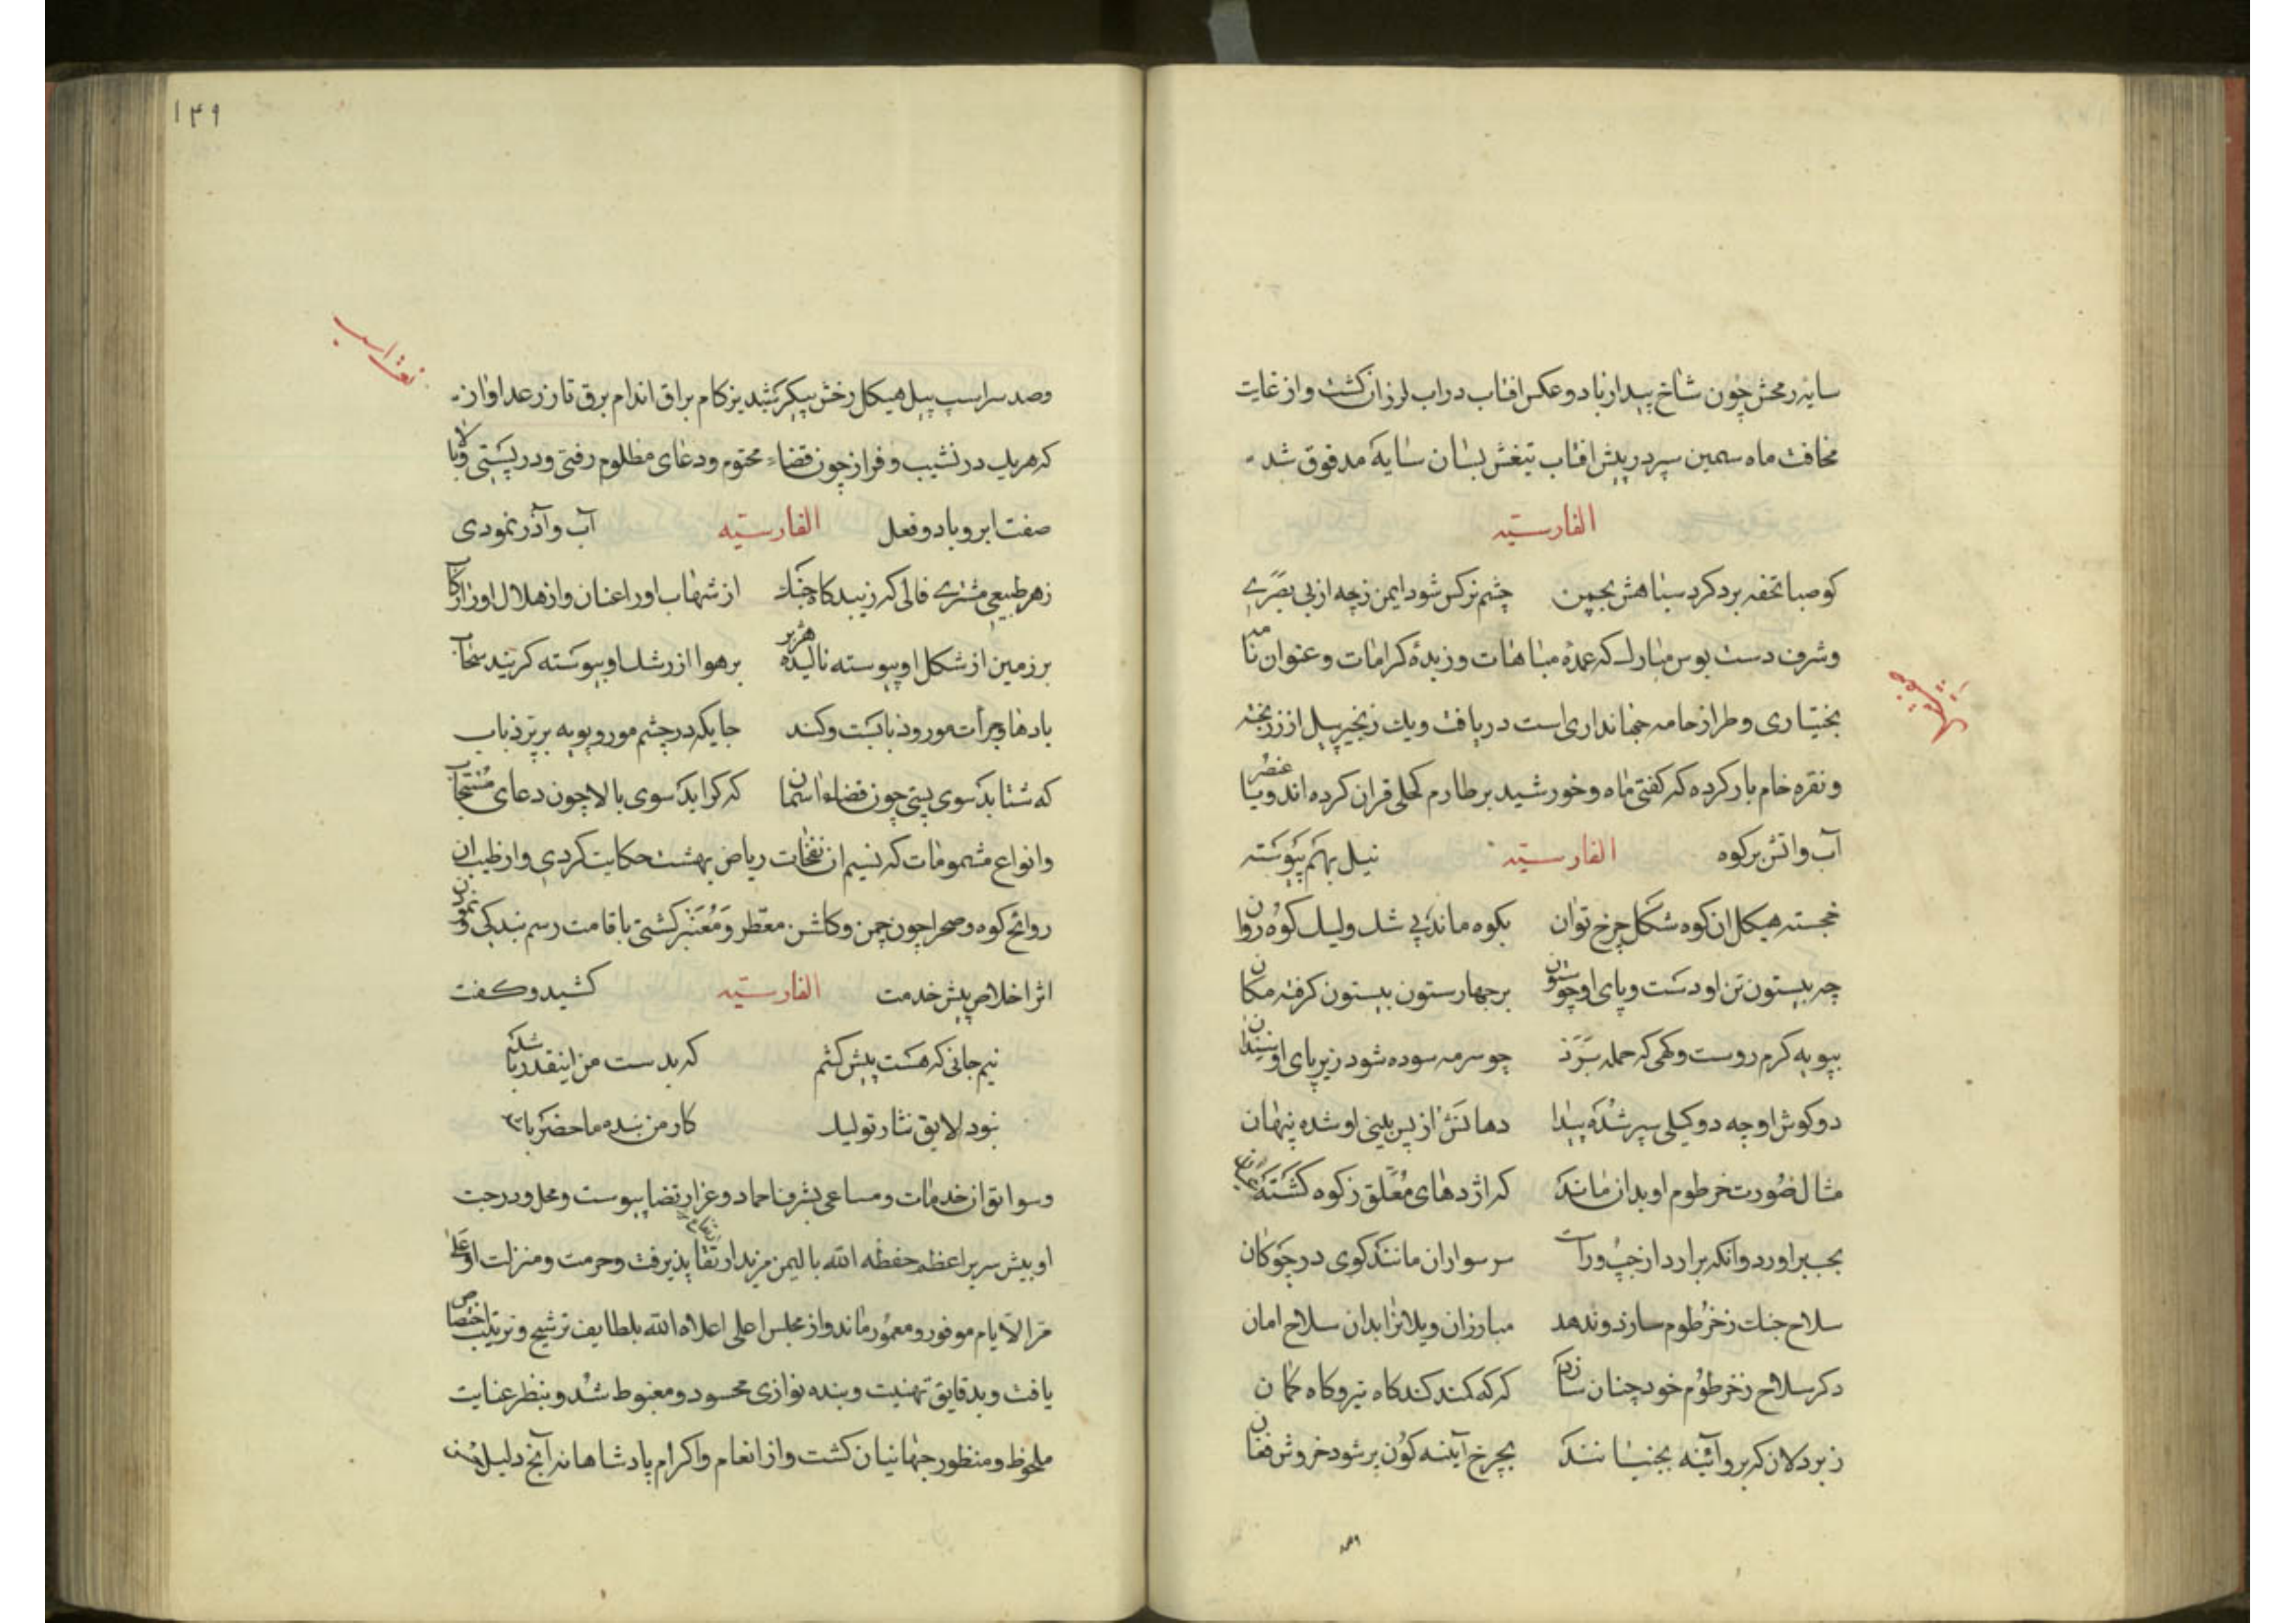 سایه رمحش چون شاخ بید از باد و عکس افتاب در اب لرزان کشت و از غایت
مخافت ماه سیمین سپر در پیش افتاب تیغش بسان سایه مدقوق شد
الفارسیّه
کو صبا تحفه برد کرد سپاهش بچمن چشم نرکس شود ایمن زچه از بی بصری
و شرف دست بوس مبارک که عمدۀ مباهات و زبدۀ کرامات و عنوان نامه
بختیاری و طراز جامه جهانداری است دریافت و یك زنجیر پیل از زر پخته
و نقره خام بار کرده که کفتی ماه و خورشید بر طارم کحلی قران کرده اند و یا عنصر
آب و اتش بر کوه الفارسیّه نیل بهم پیوسته
خجسته هیکل ان کوه شکل چرخ توان بکوه ماند بی شک ولیک کوه روان
چه بیستون تن او دست و پای او چو ستون بر چهار ستون بیستون کرفته مکان
بپویه کرم روست و کهی که حمله برد چو سرمه سوده شود زیر پای او سندان
دو کوش او چه دو کیلی سپر شده پیدا دهانش از پس بینی او شده پنهان
مثال صورت خرطوم او بدان ماند که اژدهای معلّق ز کوه کشته
بجیب اورد وانکه برارد از چپ و راست سر سواران مانند کوی در چوکان
سلاح جنك ز خرطوم سازد و ندهد مبارزان و یلانرا بدان سلاح امان
دکر سلاح ز خرطوم خود چنان سازد که که کمند کند کاه تیر و کاه کمان
ز بردلان که برو آینه بجنبانند بچرخ آینه کون بر شود خروش فغان
۱۴۹
و صد سر اسپ پیل هیکل رخش پیکر شبدیز کام براق اندام برق تاز رعد اواز
که هریك در نشیب و فراز چون قضاء محتوم و دعای مظلوم رفتی و در پستی و بالا
صفت ابر و باد و فعل الفارسیّه آب و آذر نمودی
زهر طبیعی مشتری فالی که زیبد کاه جنك از شهاب اورا عنان و از هلال اورا رکاب
بر زمین از شکل او پیوسته نالیده هزبر بر هوا از رشك او پیوسته کرینده سحاب
که شتابد سوی پستی چون قضاء اسمان که کراید سوی بالا چون دعای مستجاب
و انواع مشمومات که نسیم ان نفحات ریاض بهشت حکایت کردی و از طیب ان
روائح کوه و صحرا چون چمن و کاشن معطّر و معنبر کشتی باقامت رسم بندکی و نمودن
اثر اخلاص پیش خدمت الفارسیّه کشید و کفت
نیم جانی که هست پیش کشم که بدست من اینقدر باشد
نبود لایق نثار تو لیك کار من بنده ما حضر باشد
و سوابق ان خدمات و مساعی بشرف احماد و عز ارتضا پیوست و محل و درجت
او پیش سریر اعظم حفظه الله بالیمن مزید ارتقا پذیرفت و حرمت و منزلت او علی
مر الایام موفور و معمور ماند و از مجلس اعلی اعلاه الله بلطایف ترشیح و ترتیب اختصاص
یافت و بدقایق تهنیت و بنده نوازی محسود و مغبوط شد و بنظر عنایت
ملحوظ و منظور جهانیان کشت و از انعام و اکرام پادشاهانه آنچ دلیل